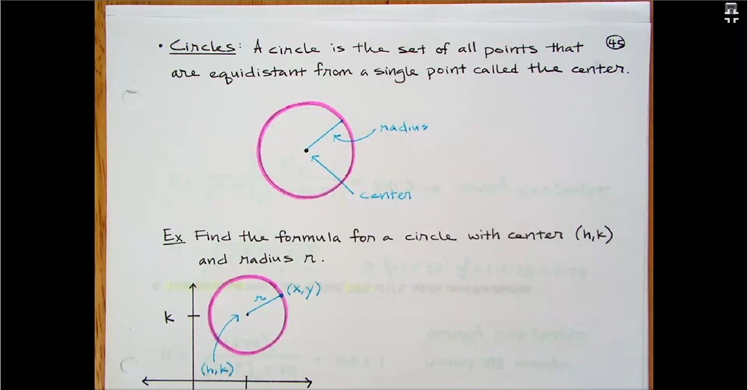 • Circles: A circle is the set of all points that (45)
are equidistant from a single point called the center.
radius
center
Ex Find the formula for a circle with center (h,k)
and radius r.
r (x,y)
k
(h,k)